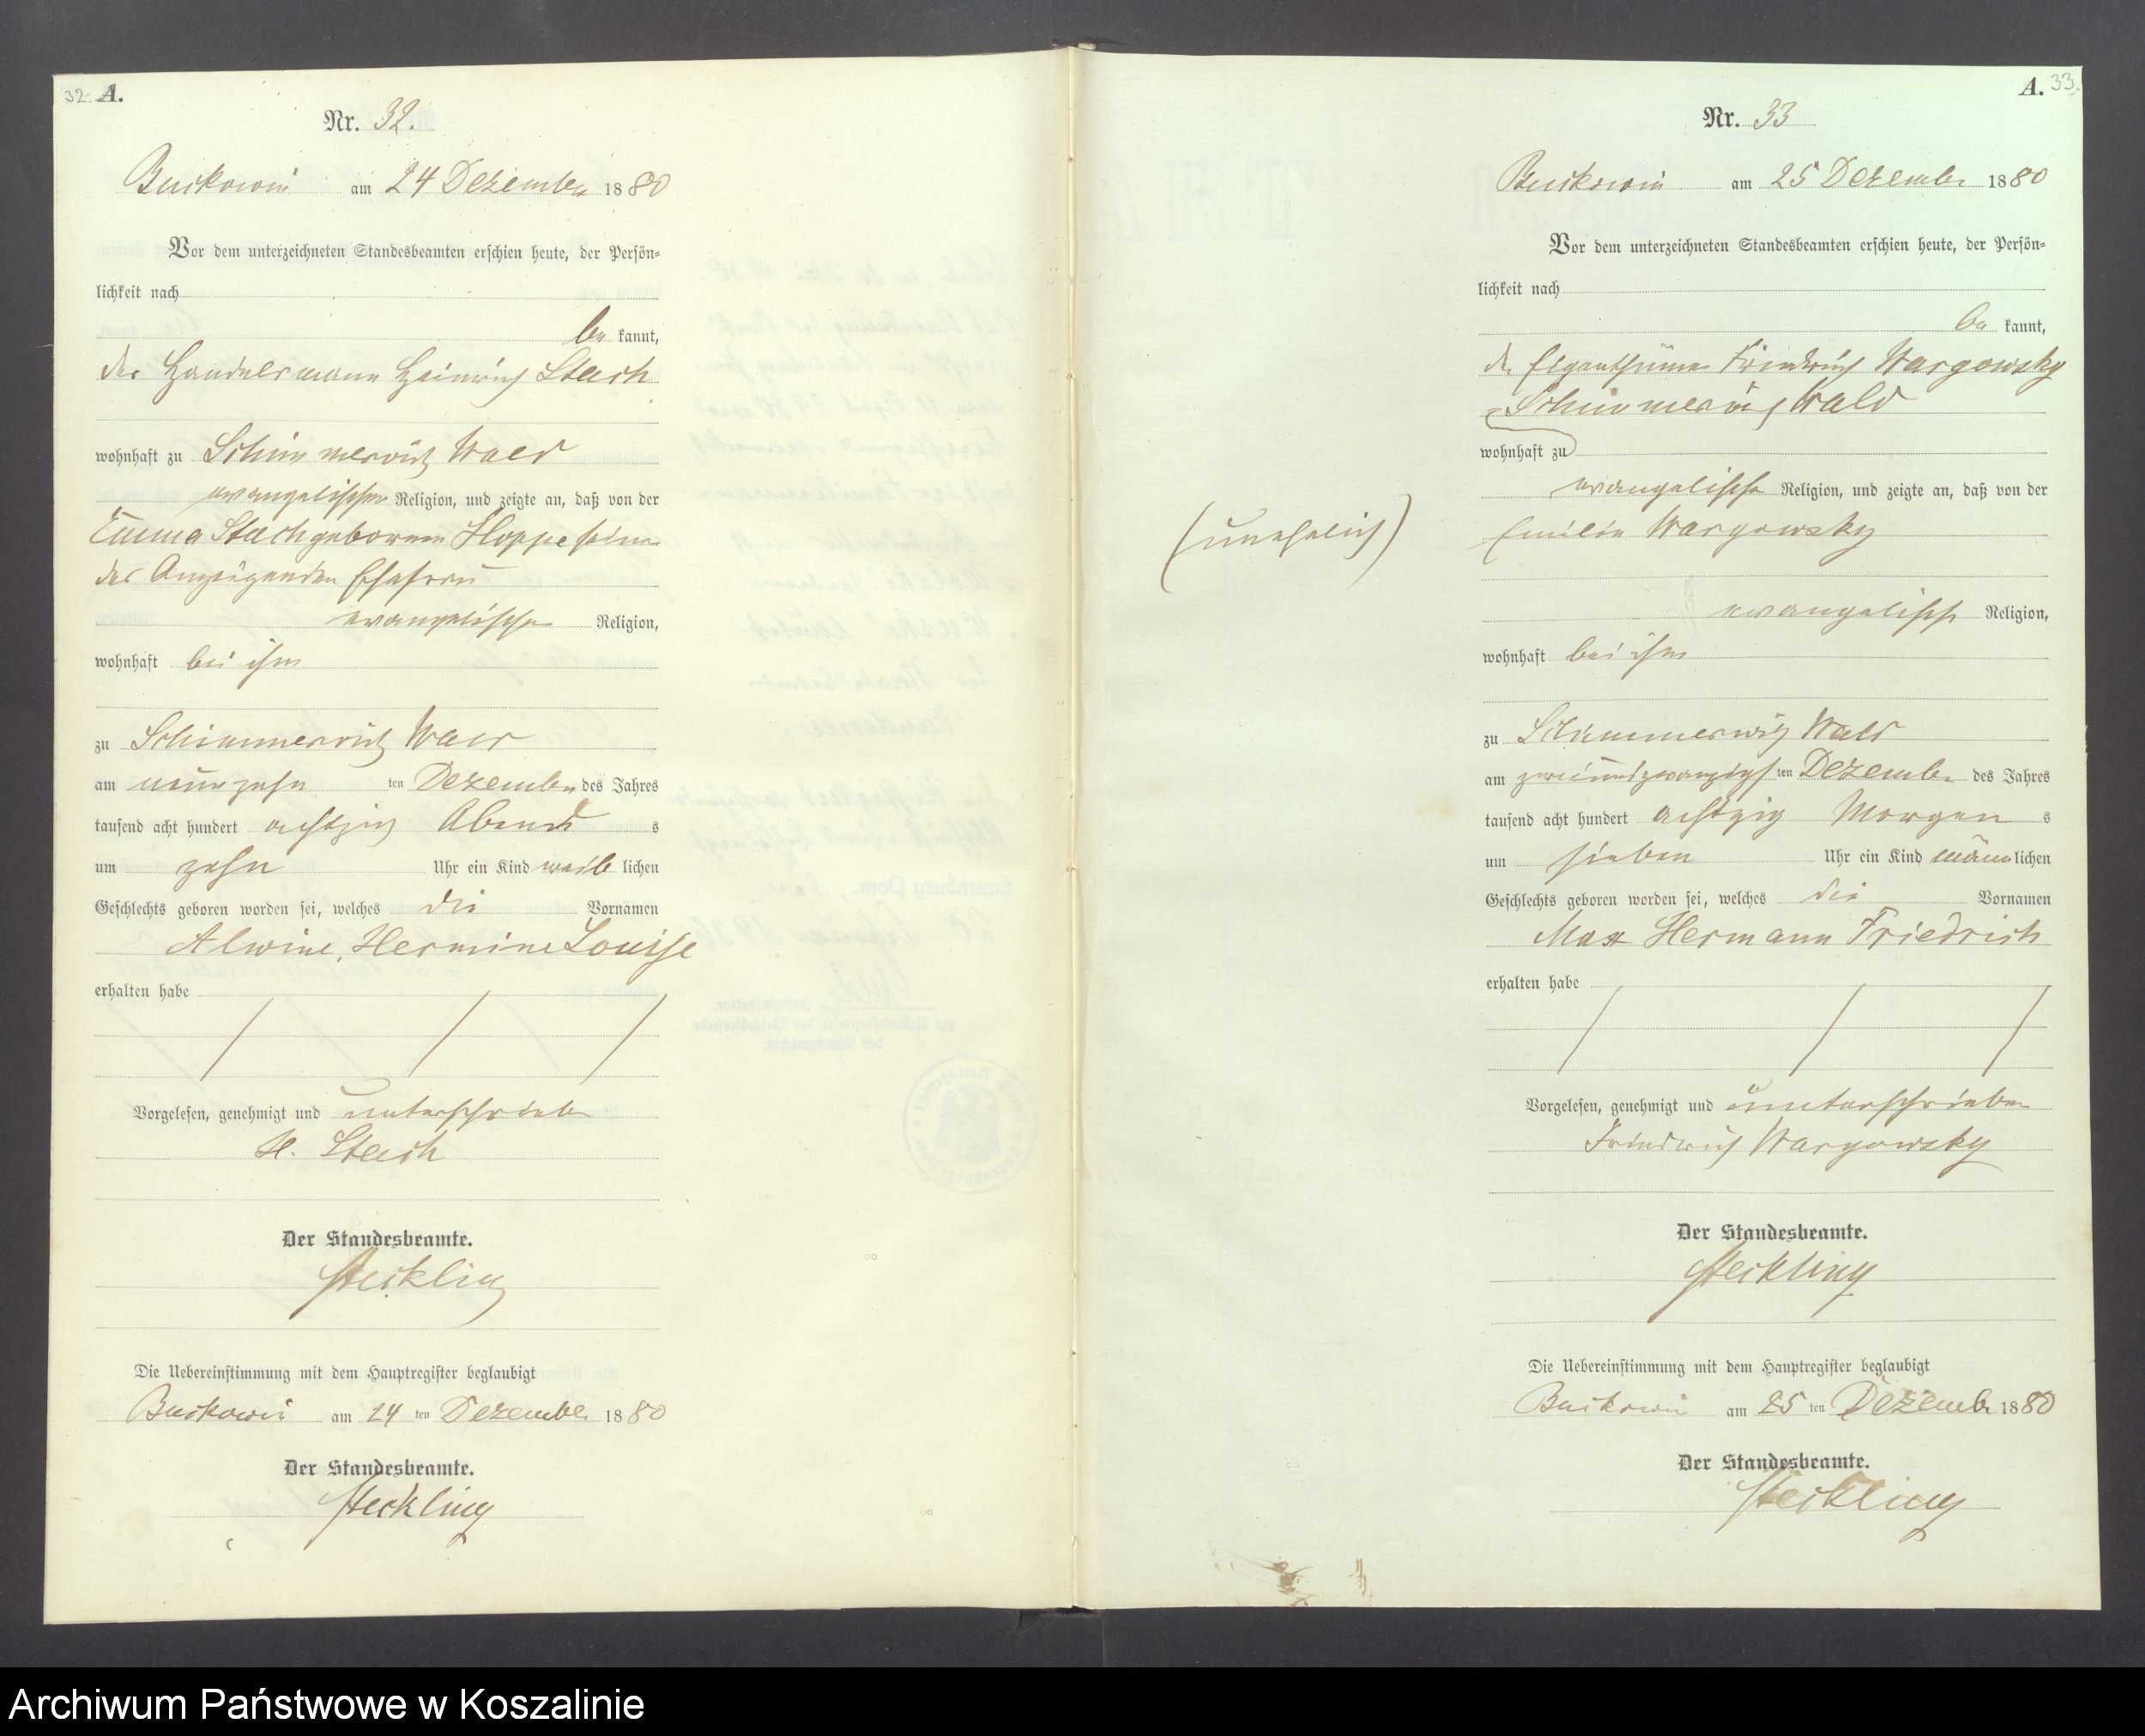 32. A.
Nr. 32.
Buckowin am 24 Dezember 1880
Vor dem unterzeichneten Standesbeamten erschien heute, der Persön=
lichkeit nach
be kannt,
der Handelsmann Heinrich Stach
wohnhaft zu Schimmerwitz Wald
evangelischer Religion, und zeigte an, daß von der
Emma Stach geborenen Hoppe seiner
des Anzeigenden Ehefrau
evangelischer Religion,
wohnhaft bei ihm
zu Schimmerwitz Wald
am neunzehn ten Dezember des Jahres
tausend acht hundert achtzig Abends
um zehn Uhr ein Kind weib lichen
Geschlechts geboren worden sei, welches die Vornamen
Alwine, Hermine Louise
erhalten habe
Vorgelesen, genehmigt und unterschrieben
H. Stach
Der Standesbeamte.
Steckling
Die Uebereinstimmung mit dem Hauptregister beglaubigt
Buckowin am 24 ten Dezember 1880
Der Standesbeamte.
Steckling
A. 33.
Nr. 33
Buckowin am 25 Dezember 1880
Vor dem unterzeichneten Standesbeamten erschien heute, der Persön=
lichkeit nach
be kannt,
der Eigenthümer Friedrich Wargowsky
Schimmerwitz Wald
wohnhaft zu
evangelische Religion, und zeigte an, daß von der
(unehelich)
Emilie Wargowsky
evangelische Religion,
wohnhaft bei ihm
zu Schimmerwitz Wald
am zweiundzwanzigs ten Dezember des Jahres
tausend acht hundert achtzig Morgen s
um sieben Uhr ein Kind männ lichen
Geschlechts geboren worden sei, welches die Vornamen
Max Hermann Friedrich
erhalten habe
Vorgelesen, genehmigt und unterschrieben
Friedrich Wargowsky
Der Standesbeamte.
Steckling
Die Uebereinstimmung mit dem Hauptregister beglaubigt
Buckowin am 25 ten Dezember 1880
Der Standesbeamte.
Steckling
Archiwum Państwowe w Koszalinie